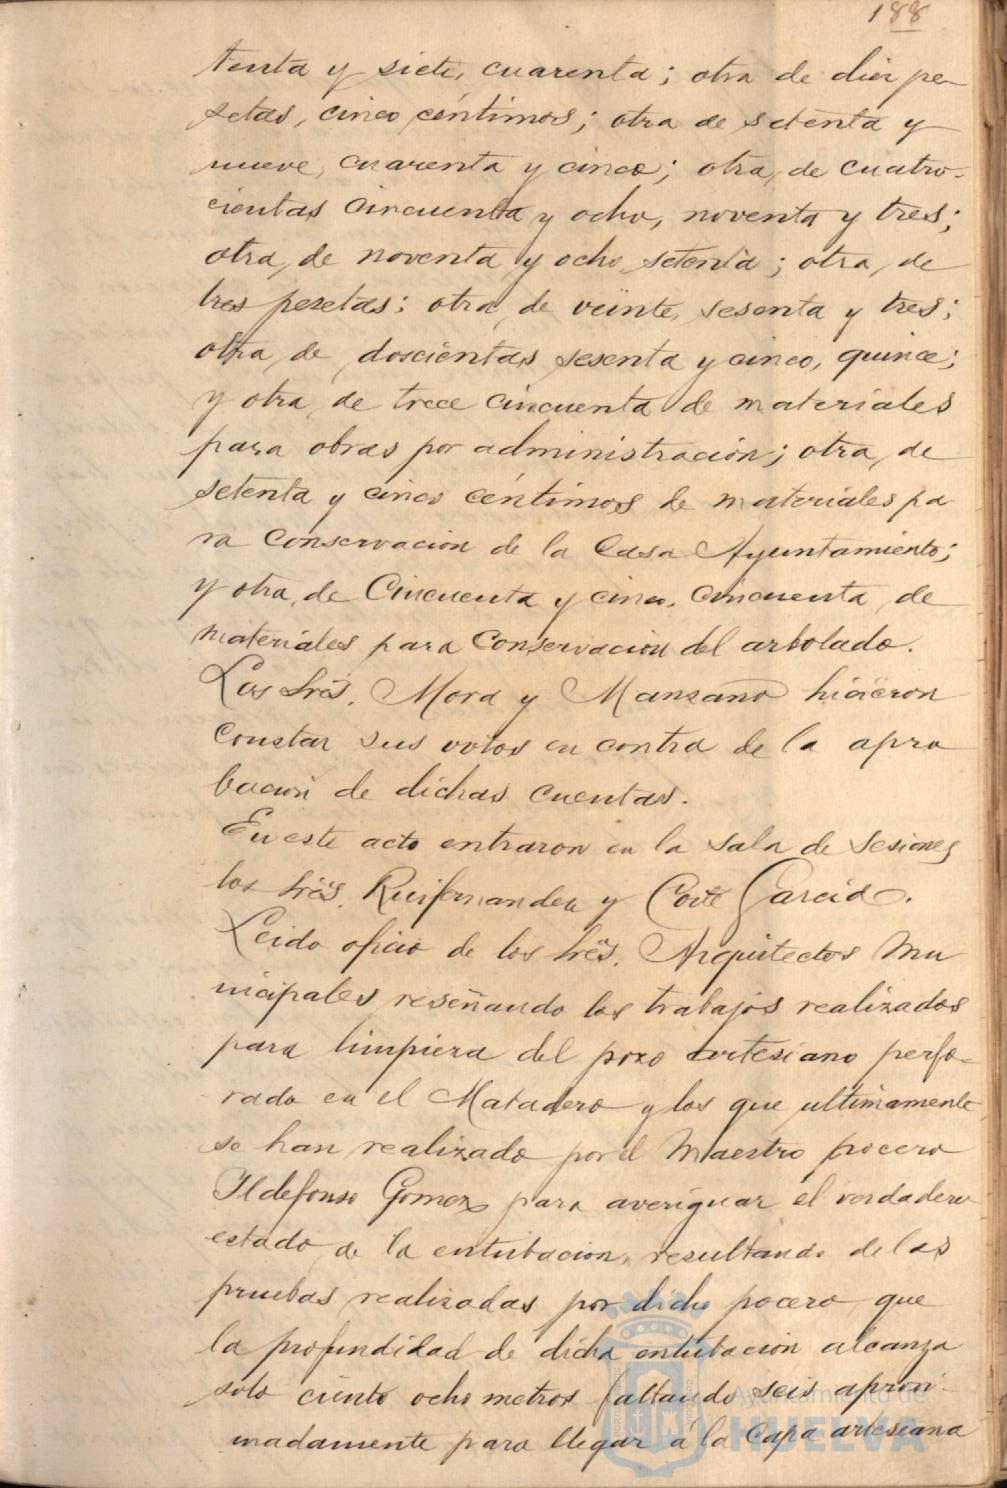 188
tenta y siete, cuarenta; otra de diez pe-
setas, cinco céntimos; otra de setenta y
nueve, cuarenta y cinco; otra, de cuatro-
cientas cincuenta y ocho, noventa y tres;
otra, de noventa y ocho, setenta; otra, de
tres pesetas; otra, de veinte, sesenta y tres;
otra, de doscientas sesenta y cinco, quince;
y otra, de trece cincuenta de materiales
para obras por administración; otra, de
setenta y cinco céntimos de materiales pa
ra conservación de la Casa Ayuntamiento;
y otra, de Cincuenta y cinco, cincuenta, de
materiales para conservación del arbolado.
Los Srẽs. Mora y Manzano hicieron
constar sus votos en contra de la apro
bación de dichas cuentas.
En este acto entraron en la sala de sesiones
los Srẽs. Ruifernandez y Corte Garcia.
Leido oficio de los Srẽs. Arquitectos Mu
nicipales reseñando los trabajos realizados
para limpieza del pozo artesiano perfo-
rado en el Matadero y los que ultimamente
se han realizado por el Maestro pocero
Ildefonso Gomez para averiguar el verdadero
estado de la entubacion, resultando de las
pruebas realizadas por dicho pocero, que
la profundidad de dicha entubacion alcanza
solo ciento ocho metros faltando seis aproxi-
madamente para llegar a la Capa artesiana
Ayuntamiento de
HUELVA